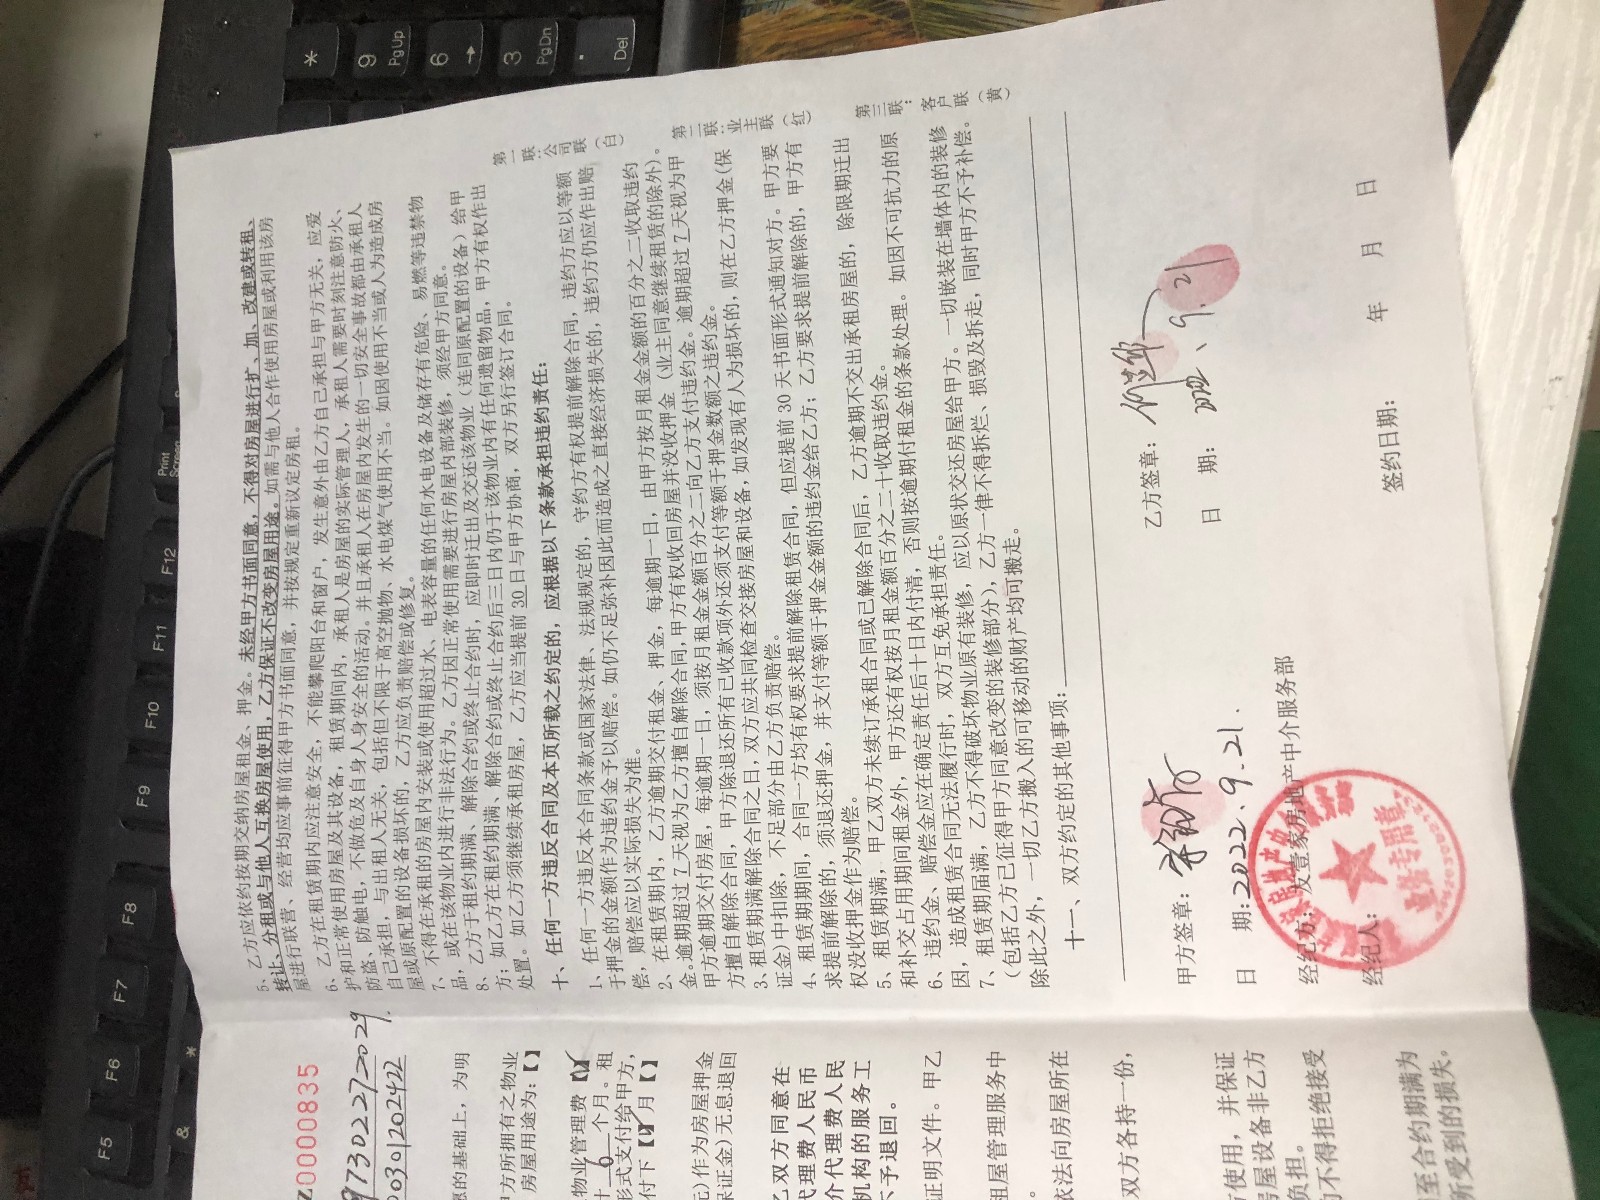 5、乙方应依约按期交纳房屋租金、押金。未经甲方书面同意，不得对房屋进行扩、加、改建或转租、
转让、分租或与他人互换房屋使用，乙方保证不改变房屋用途。如需与他人合作使用房屋或利用该房
屋进行联营、经营均应事前征得甲方书面同意，并按规定重新议定房租。
6、乙方在租赁期内应注意安全，不能攀爬阳台和窗户，发生意外由乙方自己承担与甲方无关，应爱
护和正常使用房屋及其设备，租赁期间内，承租人是房屋的实际管理人，承租人需要时刻注意防火、
防盗、防触电，不做危及自身人身安全的活动。并且承租人在房屋内发生的一切安全事故都由承租人
自己承担，与出租人无关，包括但不限于高空抛物、水电煤气使用不当。如因使用不当或人为造成房
屋或原配置的设备损坏的，乙方应负责赔偿或修复。
7、不得在承租的房屋内安装或使用超过水、电表容量的任何水电设备及储存有危险、易燃等违禁物
品，或在该物业内进行非法行为。乙方因正常使用需要进行房屋内部装修，须经甲方同意。
8、乙方于租约期满、解除合约或终止合约时，应即时迁出及交还该物业（连同原配置的设备）给甲
方；如乙方在租约期满、解除合约或终止合约后三日内仍于该物业内有任何遗留物品，甲方有权作出
处置。如乙方须继续承租房屋，乙方应当提前30日与甲方协商，双方另行签订合同。
十、任何一方违反合同及本页所载之约定的，应根据以下条款承担违约责任：
1、任何一方违反本合同条款或国家法律、法规规定的，守约方有权提前解除合同，违约方应以等额
于押金的金额作为违约金予以赔偿。如仍不足弥补因此而造成之直接经济损失的，违约方仍应作出赔
偿，赔偿应以实际损失为准。
2、在租赁期内，乙方逾期交付租金、押金，每逾期一日，由甲方按月租金金额的百分之二收取违约
金。逾期超过7天视为乙方擅自解除合同，甲方有权收回房屋并没收押金（业主同意继续租赁的除外）。
甲方逾期交付房屋，每逾期一日，须按月租金金额百分之二向乙方支付违约金。逾期超过7天视为甲
方擅自解除合同，甲方除退还所有已收款项外还须支付等额于押金数额之违约金。
3、租赁期满解除合同之日，双方应共同检查交接房屋和设备，如发现有人为损坏的，则在乙方押金(保
证金)中扣除，不足部分由乙方负责赔偿。
4、租赁期期间，合同一方均有权要求提前解除租赁合同，但应提前30天书面形式通知对方。甲方要
求提前解除的，须退还押金，并支付等额于押金金额的违约金给乙方；乙方要求提前解除的，甲方有
权没收押金作为赔偿。
5、租赁期满，甲乙双方未续订承租合同或已解除合同后，乙方逾期不交出承租房屋的，除限期迁出
和补交占用期间租金外，甲方还有权按月租金额百分之二十收取违约金。
6、违约金、赔偿金应在确定责任后十日内付清，否则按逾期付租金的条款处理。如因不可抗力的原
因，造成租赁合同无法履行时，双方互免承担责任。
7、租赁期届满，乙方不得破坏物业原有装修，应以原状交还房屋给甲方。一切嵌装在墙体内的装修
（包括乙方已征得甲方同意改变的装修部分），乙方一律不得拆烂、损毁及拆走，同时甲方不予补偿。
除此之外，一切乙方搬入的可移动的财产均可搬走。
十一、双方约定的其他事项：
甲方签章： 乙方签章：
日 期：2022.9.21. 日 期：2022、9.21
经纪方：友壹家房地产中介服务部
经纪人： 签约日期： 年 月 日
业务专用章
第一联：公司联（白）
第二联：业主联（红）
第三联：客户联（黄）
Z0000835
97302227/2029
00301202422
惠的基础上，为明
方所拥有之物业
房屋用途为：【】
物业管理费【】
十 6 个月。租
形式支付给甲方，
付下【 】月【】
元)作为房屋押金
保证金)无息退回
乙双方同意在
代理费人民币
介代理费人民
机构的服务工
不予退回。
证明文件。甲乙
租屋管理服务中
依法向房屋所在
双方各持一份，
使用，并保证
房屋设备非乙方
负担。
不得拒绝接受
至合约期满为
所受到的损失。
*
9
PgUp
6
→
3
PgDn
.
Del
Print
Screen
F12
F11
F10
F9
F8
F7
F6
F5
&
*